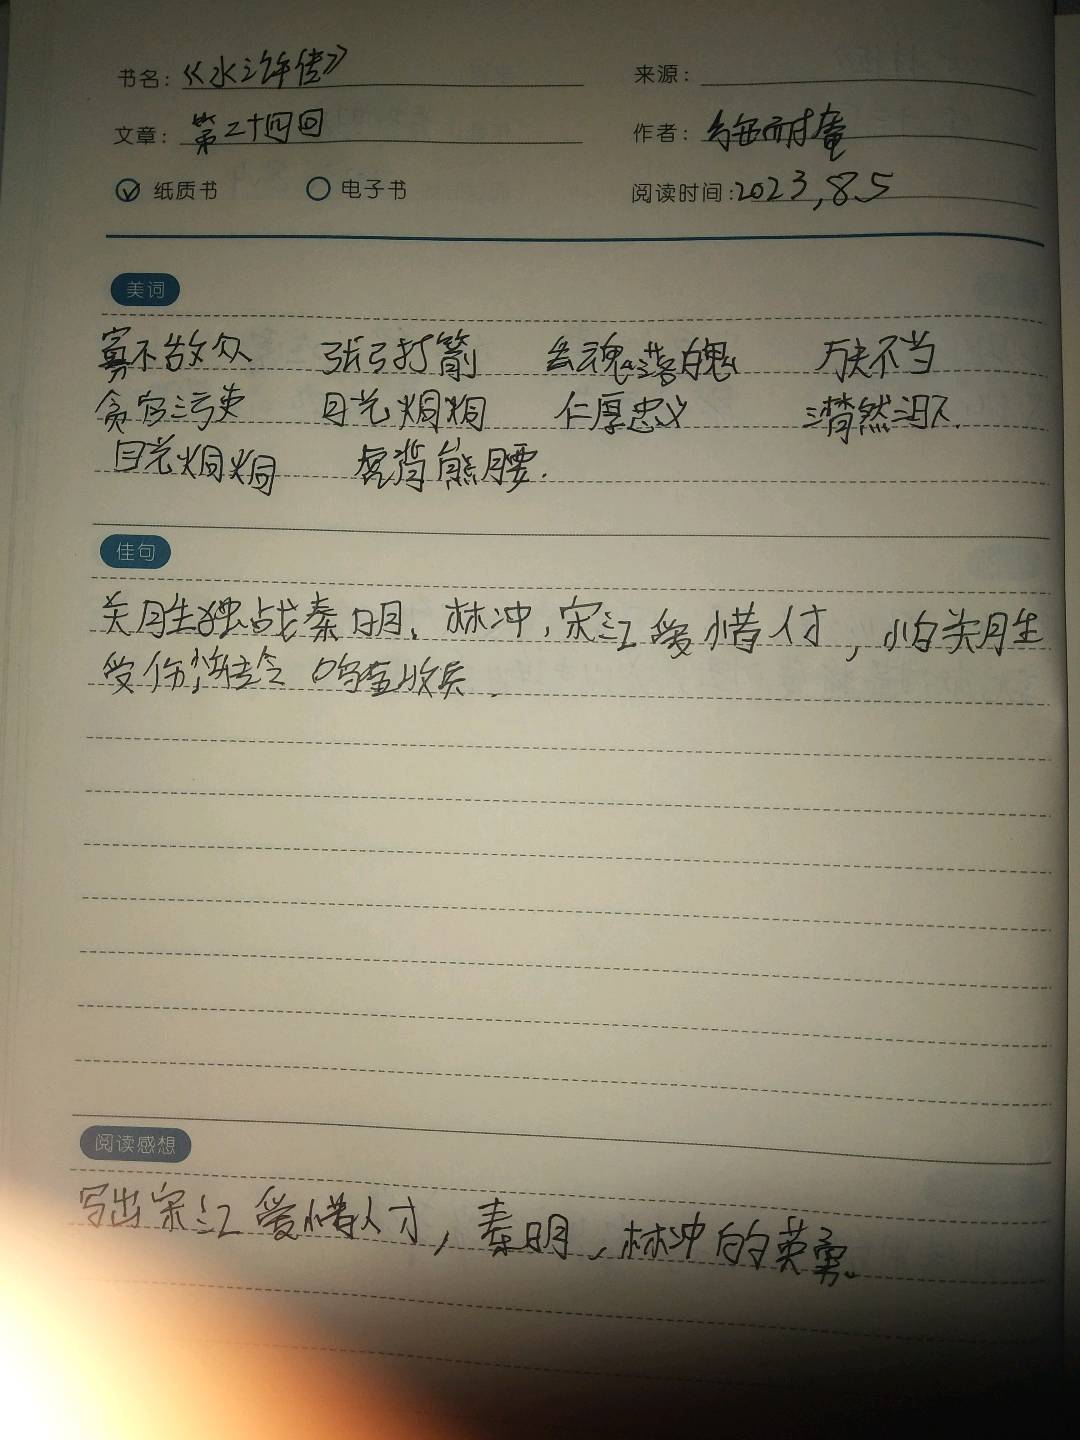 书名：《水浒传》
来源：
文章：第二十四回
作者：施耐庵
纸质书 电子书
阅读时间：2023,8.5
美词
寡不敌众 张弓打箭 丢魂落魄 万夫不当
贪官污吏 目光炯炯 仁厚忠义 潸然泪下.
目光炯炯 虎背熊腰.
佳句
关胜独战秦明、林冲,宋江爱惜人才,怕关胜
受伤,传令 鸣金收兵.
阅读感想
写出宋江爱惜人才,秦明,林冲的英勇。